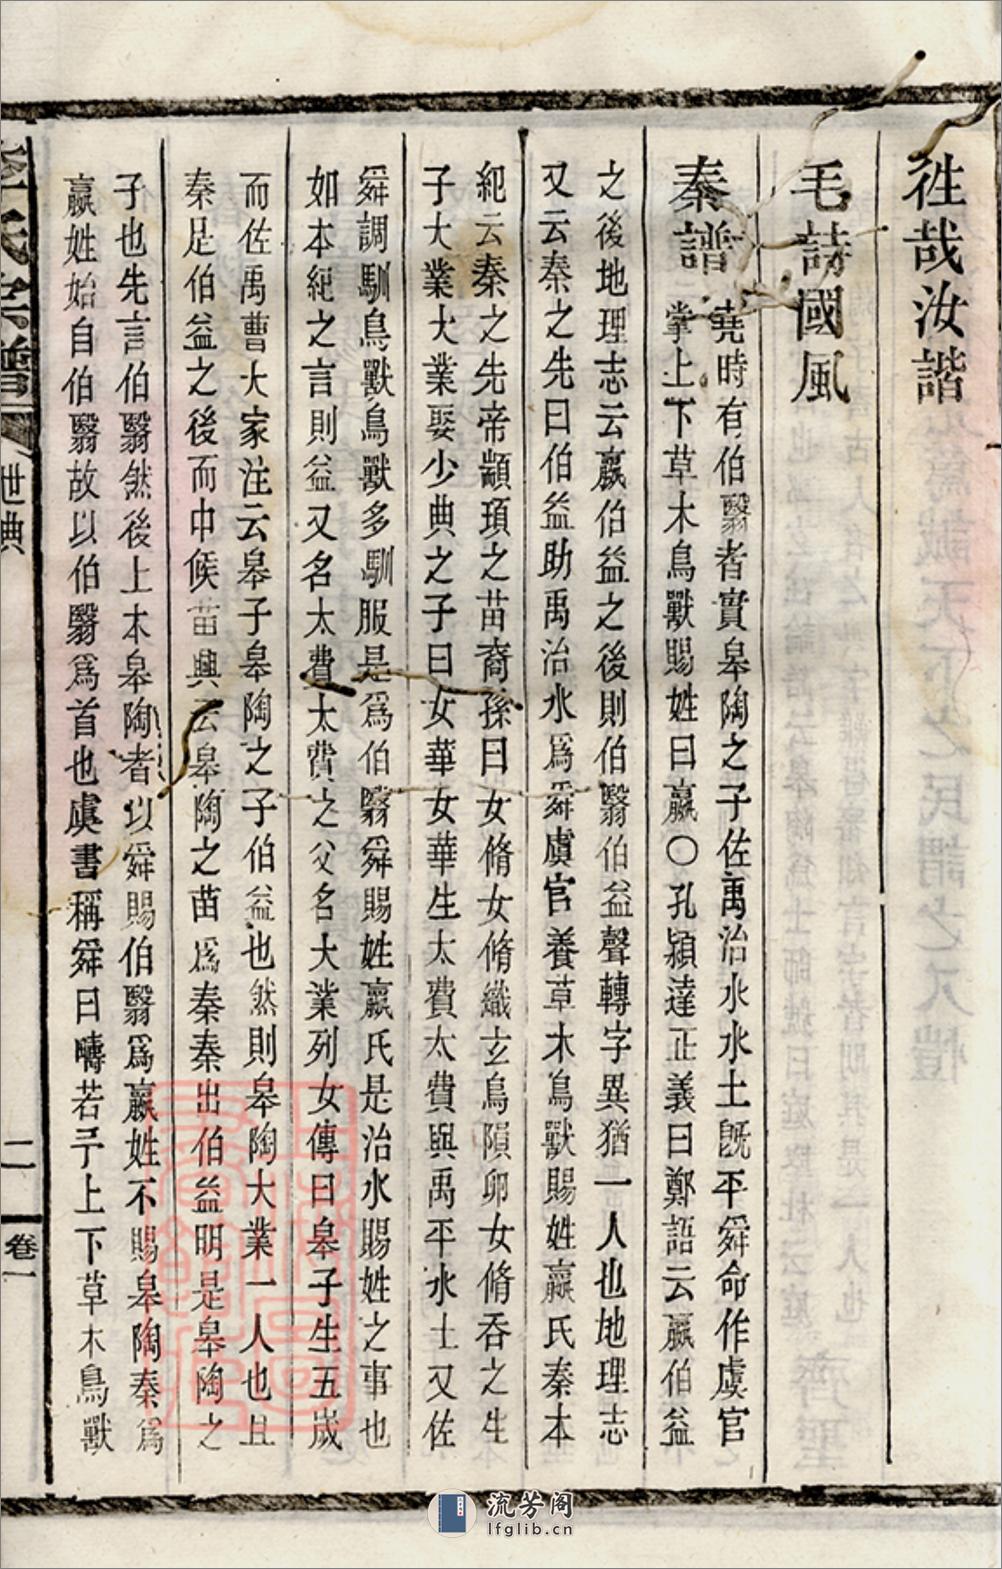 徃哉汝諧
毛詩國風
秦譜
堯時有伯翳者實皋陶之子佐禹治水水土旣平舜命作虞官
掌上下草木鳥獸賜姓曰嬴○孔潁達正義曰鄭語云嬴伯益
之後地理志云嬴伯益之後則伯翳伯益聲轉字異猶一人也地理志
又云秦之先曰伯益助禹治水爲舜虞官養草木鳥獸賜姓嬴氏秦本
紀云秦之先帝顓頊之苗裔孫曰女脩女脩織玄鳥隕卵女脩吞之生
子大業大業娶少典之子曰女華女華生太費太費與禹平水土又佐
舜調馴鳥獸鳥獸多馴服是爲伯翳舜賜姓嬴氏是治水賜姓之事也
如本紀之言則益又名太費太費之父名大業列女傳曰皋子生五歲
而佐禹曹大家注云皋子皋陶之子伯益也然則皋陶大業一人也且
秦是伯益之後而中候苗興云皋陶之苗爲秦秦出伯益明是皋陶之
子也先言伯翳然後上本皋陶者以舜賜伯翳爲嬴姓不賜皋陶秦爲
嬴姓始自伯翳故以伯翳爲首也虞書稱舜曰疇若予上下草木鳥獸
李氏宗譜
世典
二
卷一
流芳阁
lfglib.cn